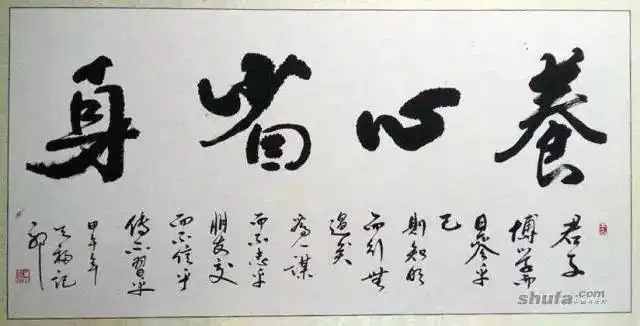 養心省身
君子
博學而
日參乎
己
則知明
而行無
過矣
為人謀
而不忠乎
朋友交
而不信乎
傳不習乎
甲午年
福記
shufa.com